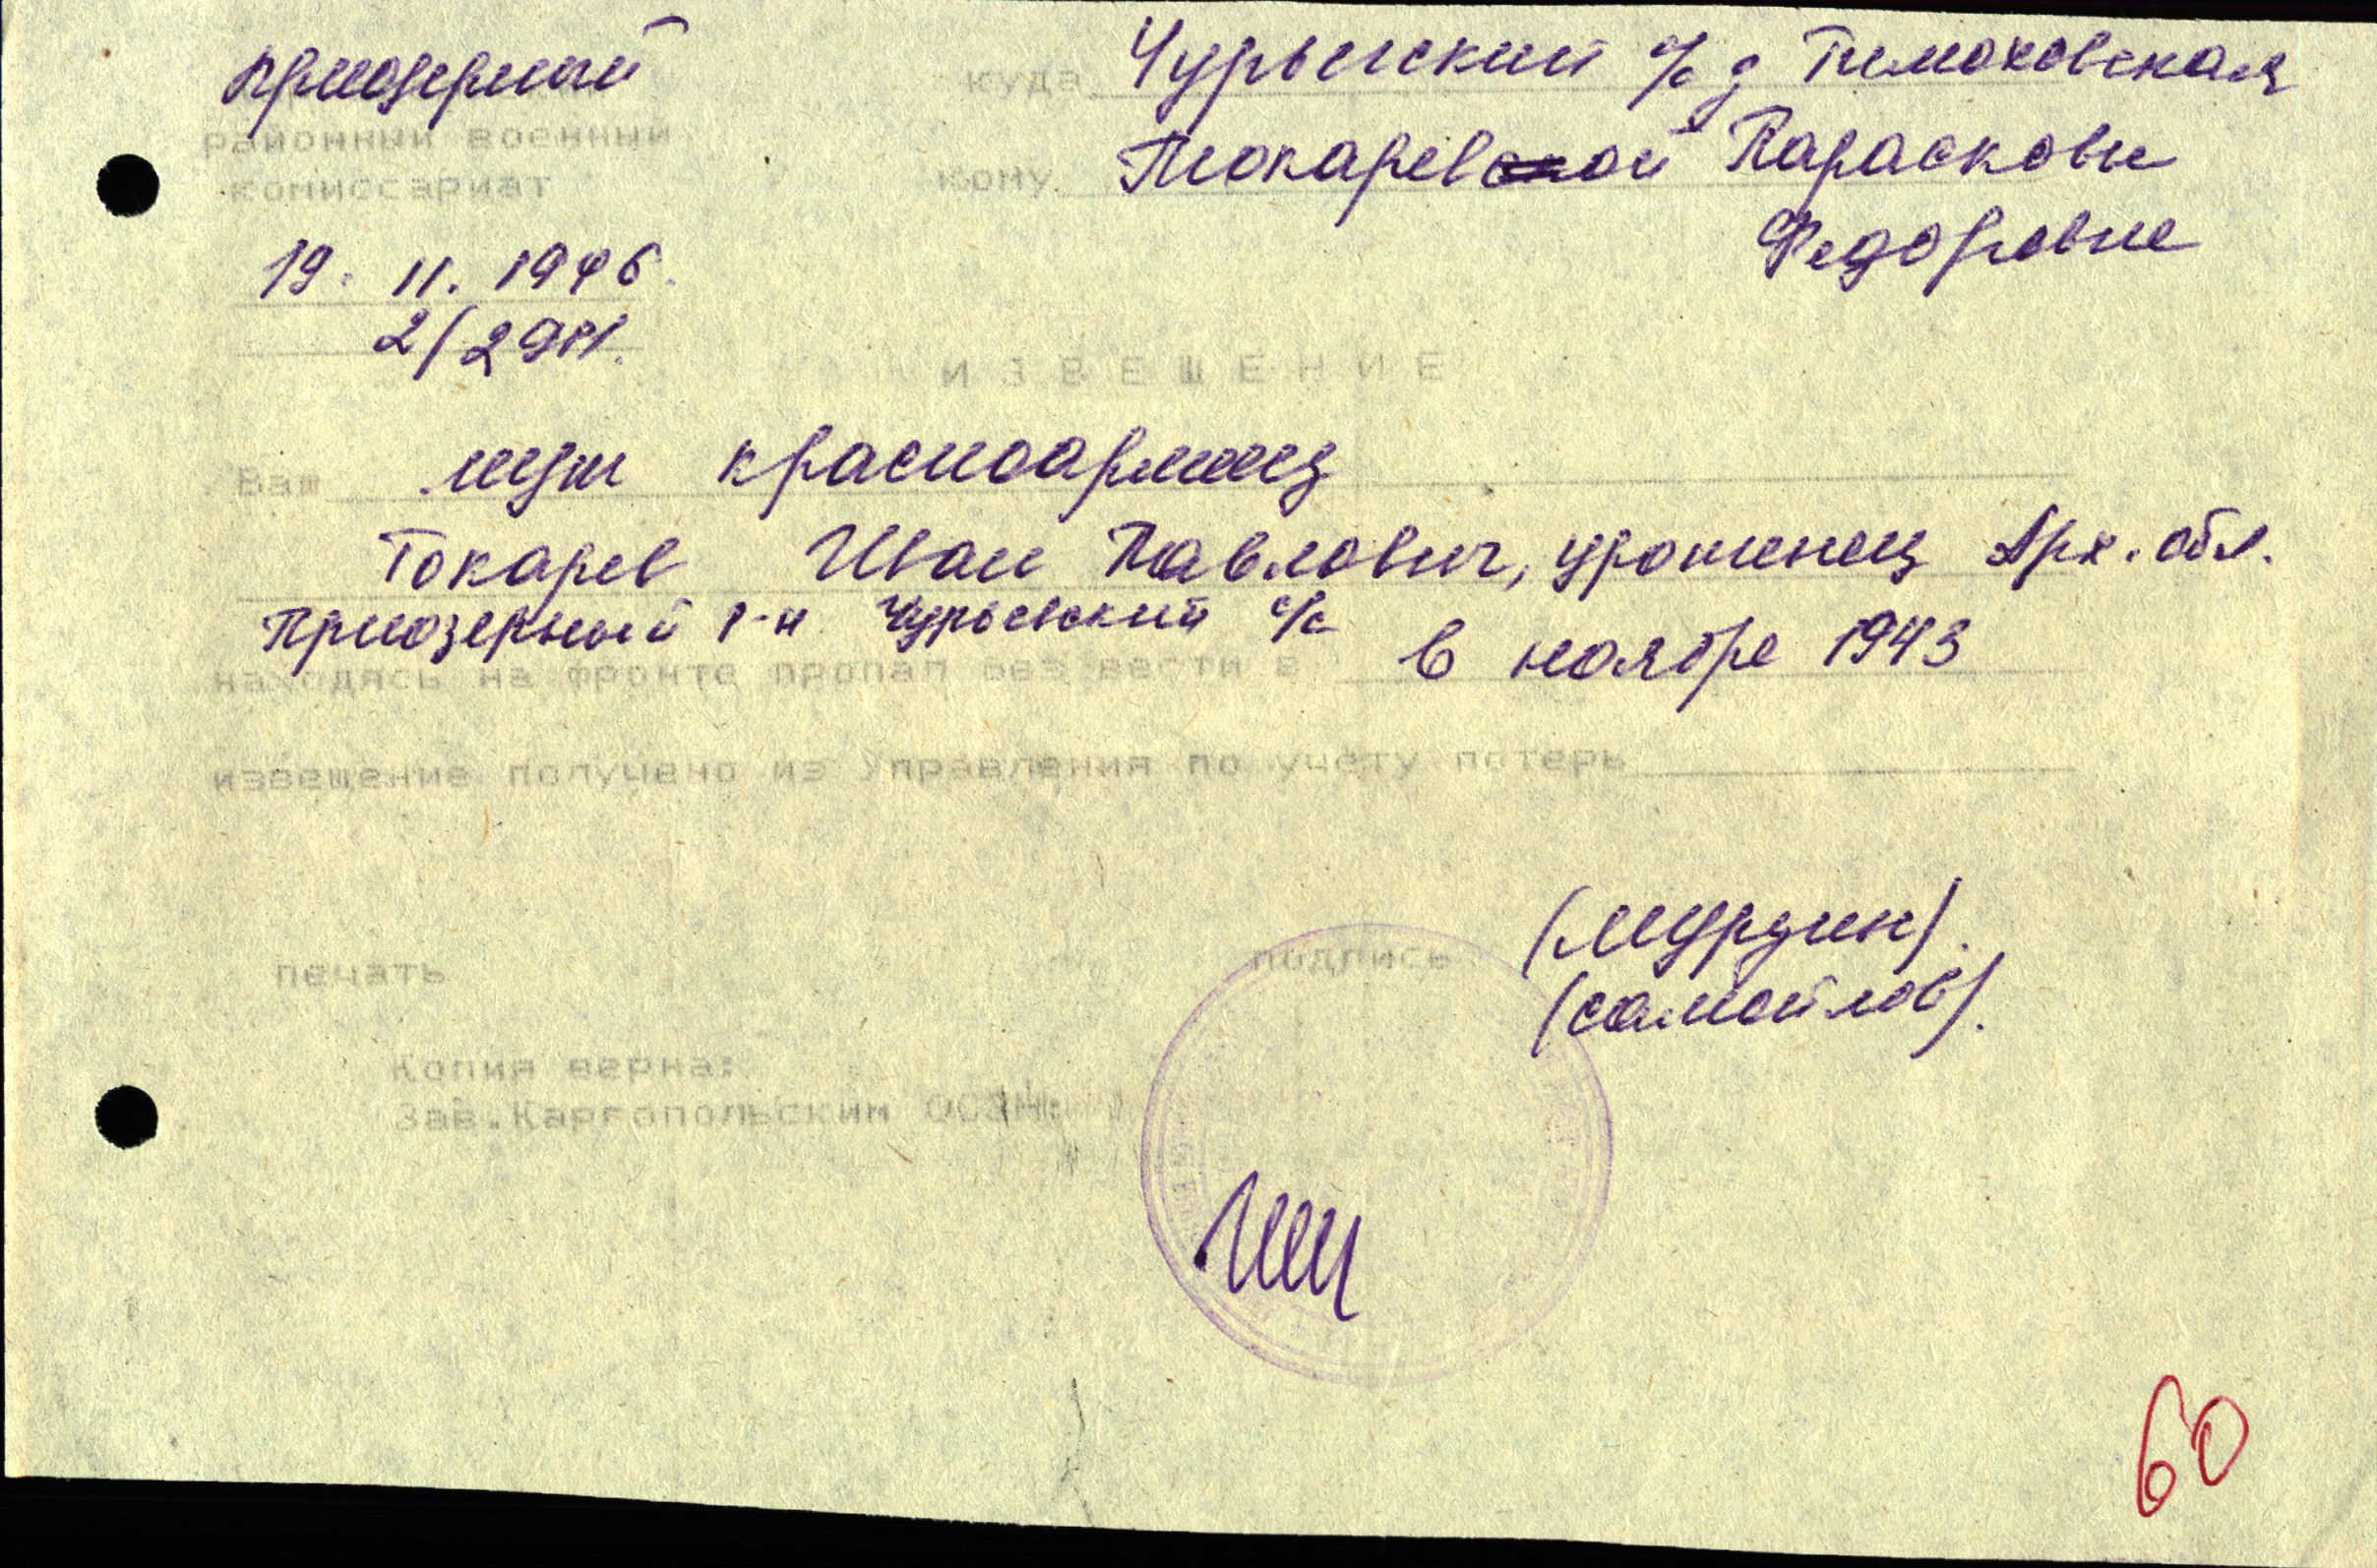 Приозерный
районный военный
комиссариат
19. 11. 1946.
2/2911.
куда Чурьегский с/с д Тимоховская
кому Токаревой Парасковье
Федоровне
ИЗВЕЩЕНИЕ
Ваш муж красноармеец
Токарев Иван Павлович, уроженец Арх. обл.
Приозерный р-н Чурьегский с/с
находясь на фронте пропал без вести в в ноябре 1943
извещение получено из Управления по учету потерь
печать
подпись (Мурдин).
(Самойлов).
Копия верна:
Зав. Каргопольским ОСЗН:
60